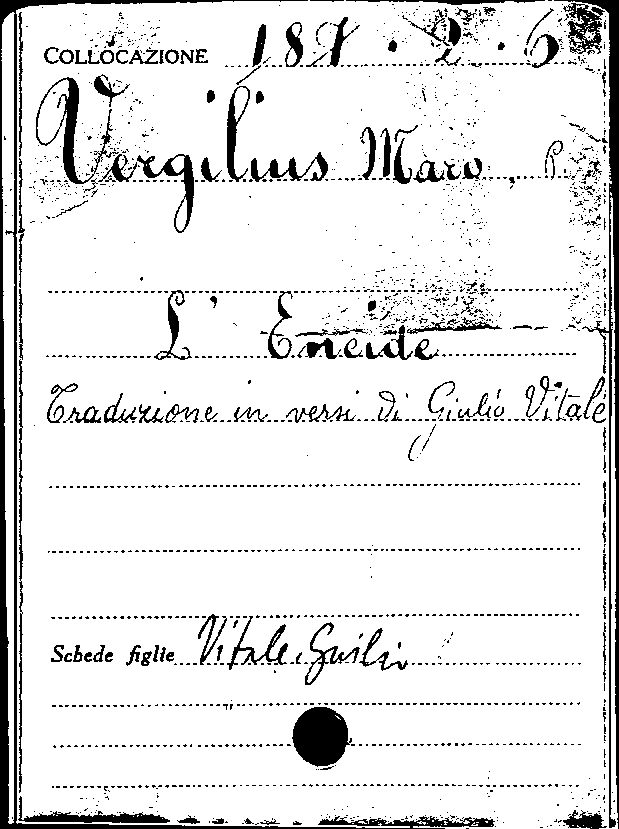 COLLOCAZIONE 187 . 2 . 6
Vergilius Maro, P.
L' Eneide
Traduzione in versi di Giulio Vitale
Schede figlie Vitale, Giulio